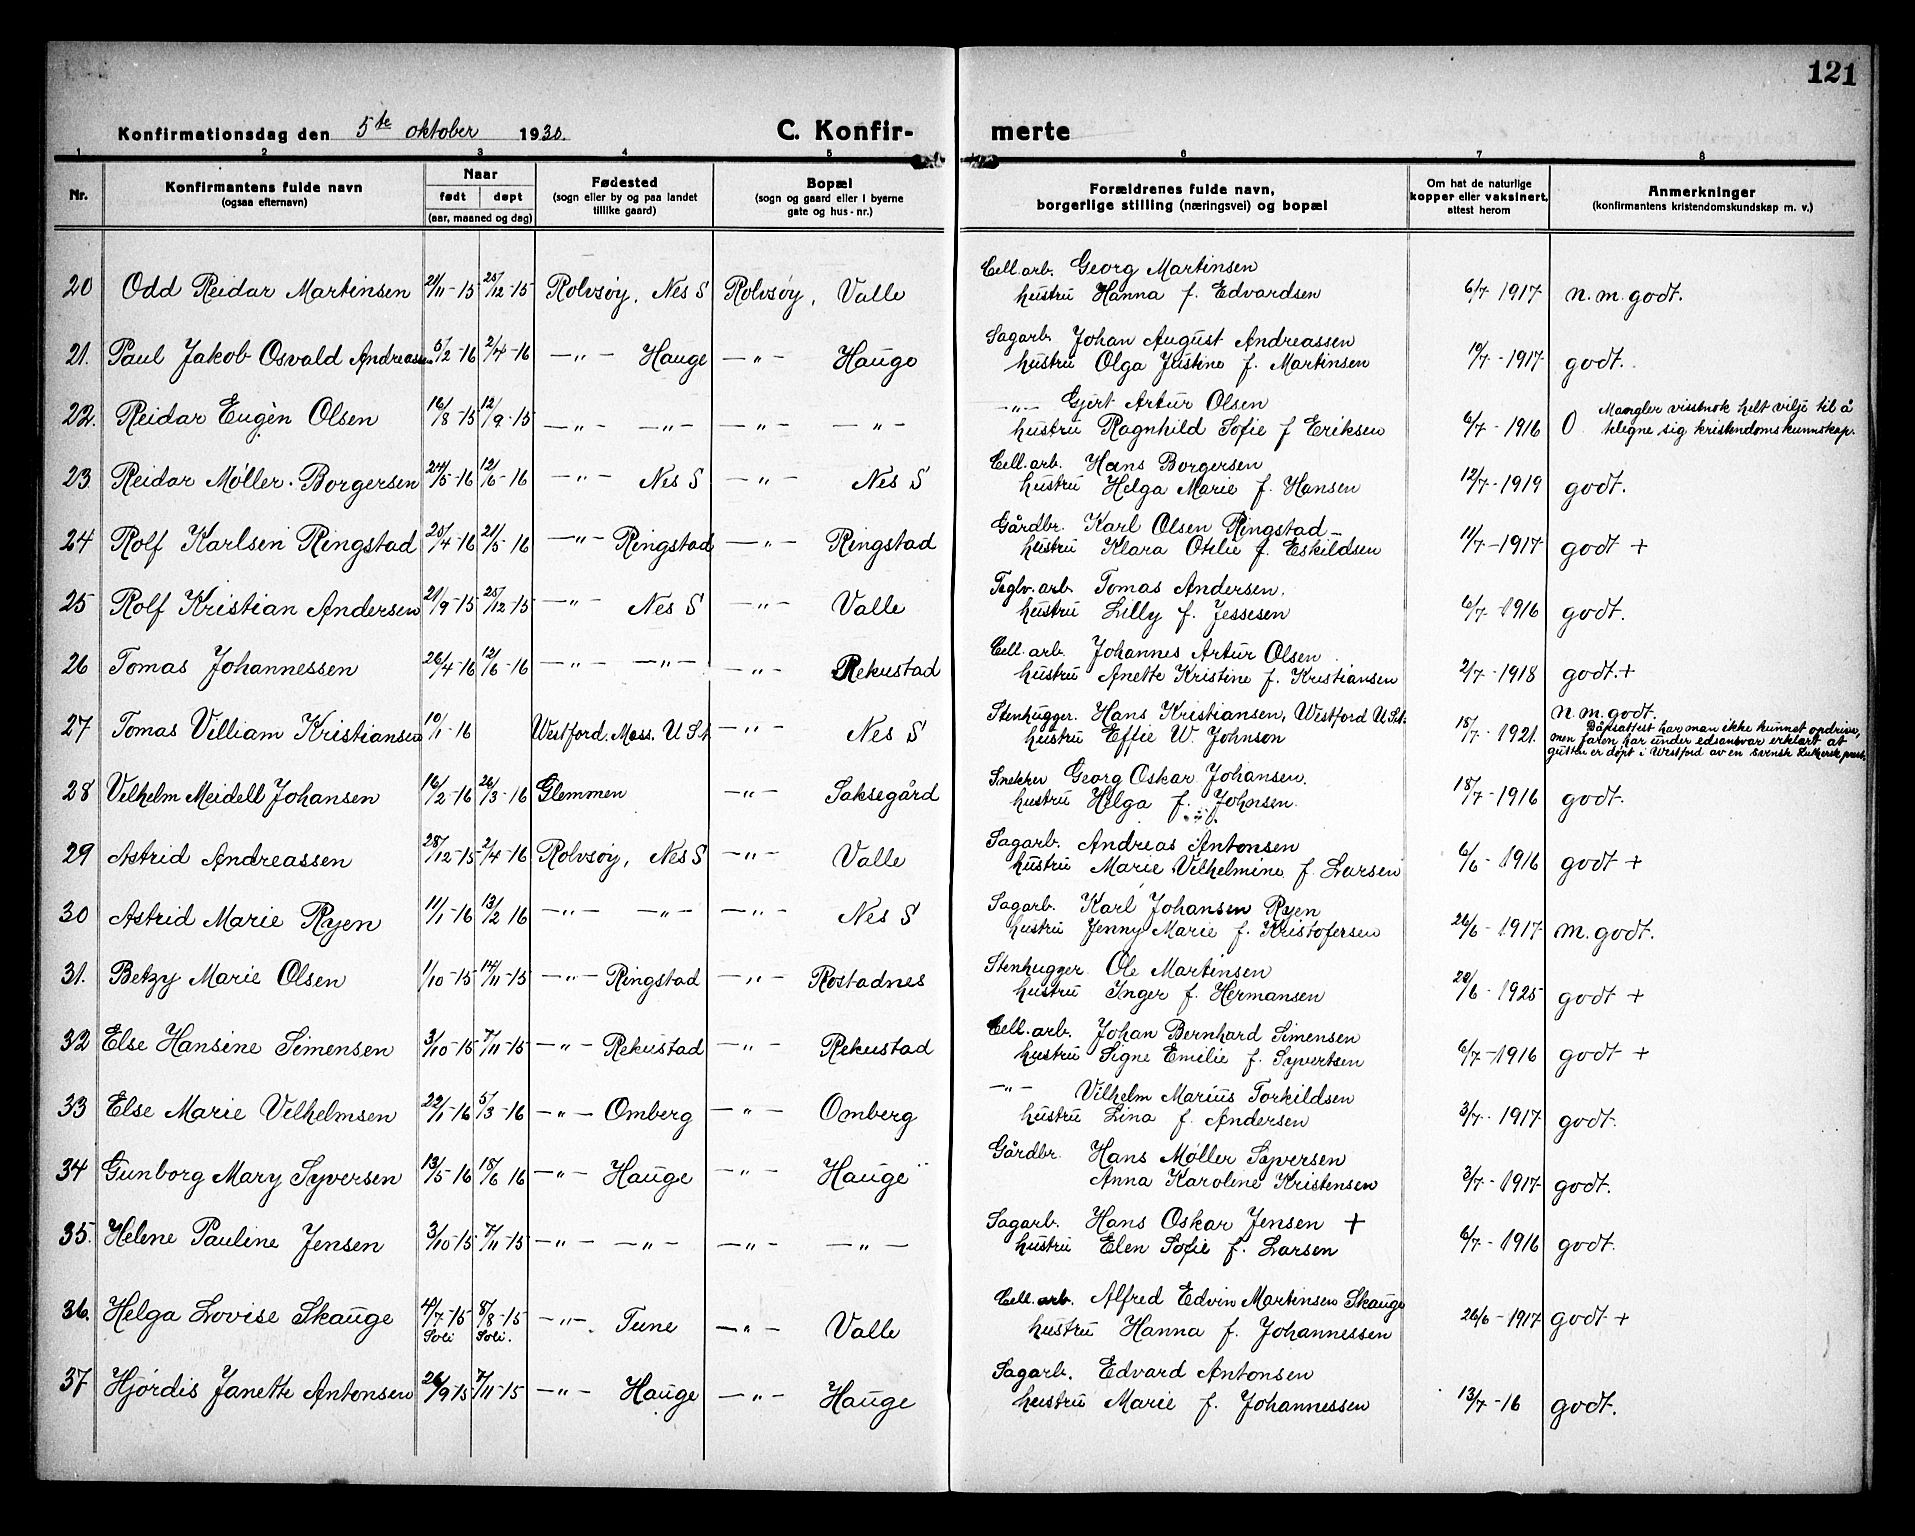 121
Konfirmationsdag den 5te oktober 1930. C. Konfir- merte
1 2 3 4 5 6 7 8
Nr. Konfirmantens fulde navn (ogsaa efternavn) Naar født døpt (aar, maaned og dag) Fødested (sogn eller by og paa landet tillike gaard) Bopæl (sogn og gaard eller i byerne gate og hus-nr.) Forældrenes fulde navn, borgerlige stilling (næringsvei) og bopæl Om hat de naturlige kopper eller vaksinert, attest herom Anmerkninger (konfirmantens kristendomskundskap m. v.)
20 Odd Reidar Martinsen 21/11-15 25/12-15 Rolvsøy, Nes S Rolvsøy, Valle Cell.arb. Georg Martinsen
hustru Hanna f. Edvardsen 6/7 1917 n.m.godt.
21. Paul Jakob Osvald Andreassen 5/2-16 2/4-16 —"— Hauge —"— Hauge Sagarb. Johan August Andreassen
hustru Olga Justine f. Martinsen 10/7-1917 godt.
22. Reidar Eugèn Olsen 16/8-15 12/9-15 —"— —"— —"— —"— —"— Gjert Artur Olsen
hustru Ragnhild Sofie f Eriksen 6/7-1916 0 Mangler visstnok helt vilje til å
tilegne sig kristendomskunnskap.
23 Reidar Møller-Borgersen 24/5-16 12/6-16 —"— Nes S —"— Nes S Cell.arb. Hans Borgersen
hustru Helga Marie f. Hansen 12/7-1919 godt.
24 Rolf Karlsen Ringstad 25/4-16 21/5-16 —"— Ringstad —"— Ringstad Gårdbr. Karl Olsen Ringstad
hustru Klara Otilie f. Eskildsen 11/7-1917 godt +
25 Rolf Kristian Andersen 21/9-15 25/12-15 —"— Nes S —"— Valle Teglv.arb. Tomas Andersen.
hustru Lilly f. Jessesen 6/7-1916 godt.
26 Tomas Johannessen 26/4-16 12/6-16 —"— —"— —"— Rekustad Cell.arb. Johannes Artur Olsen
hustru Anette Kristine f. Kristiansen 2/7-1918 godt.+
27 Tomas Villiam Kristiansen 10/1-16 Westford. Mass. U St. —"— Nes S Stenhugger. Hans Kristiansen, Westford U.St.
hustru Effie W. Johnson 18/7-1921. n.m.godt.
Dåpsattest har man ikke kunnet opdrive,
men faren har under edsansvar erklært at
gutten er døpt i Westford av en svensk Luthersk prest.
28 Vilhelm Meidell Johansen 16/2-16 26/3-16 Glemmen —"— Saksegård Snekker Georg Oskar Johansen.
hustru Helga f. Johnsen. 18/7-1916 godt.
29 Astrid Andreassen 28/12-15 2/4-16 Rolvsøy, Nes S —"— Valle Sagarb. Andreas Antonsen
hustru Marie Vilhelmine f. Larsen 6/6-1916 godt +
30 Astrid Marie Ryen 11/1-16 13/2 16 —"— —"— —"— Nes S Sagarb. Karl Johansen Ryen
hustru Jenny Marie f. Kristofersen 26/6-1917 m.godt.
31. Betzy Marie Olsen 1/10-15 14/11-15 —"— Ringstad —"— Rostadnes Stenhugger Ole Martinsen
hustru Inger f. Hermansen 20/6-1925 godt +
32 Else Hansine Simensen 3/10-15 7/11-15 —"— Rekustad —"— Rekustad Cell.arb. Johan Bernhard Simensen
hustru Signe Emilie f. Syvertsen 6/7-1916 godt +
33 Else Marie Vilhelmsen 22/1-16 5/3-16 —"— Omberg —"— Omberg —"— Vilhelm Marius Torkildsen
hustru Lina f. Andersen 3/7-1917 godt.
34 Gunborg Mary Syversen 13/5-16 18/6 16 —"— Hauge —"— Hauge Gårdbr. Hans Møller Syversen
Anna Karoline Kristensen 3/7-1917 godt.
35. Helene Pauline Jensen 3/10-15 7/11-15 —"— —"— —"— —"— Sagarb. Hans Oskar Jensen +
hustru Elen Sofie f. Larsen 6/7-1916 godt.
36. Helga Lovise Skauge 4/7-15 Soli 8/8-15 Soli. —"— Tune —"— Valle Cell.arb. Alfred Edvin Martinsen Skauge
hustru Hanna f. Johannessen 26/6-1917 godt +
37 Hjördis Janette Antonsen 26/9-15 7/11-15 —"— Hauge —"— Hauge Sagarb. Edvard Antonsen
hustru Marie f. Johannessen 13/7-16 godt.